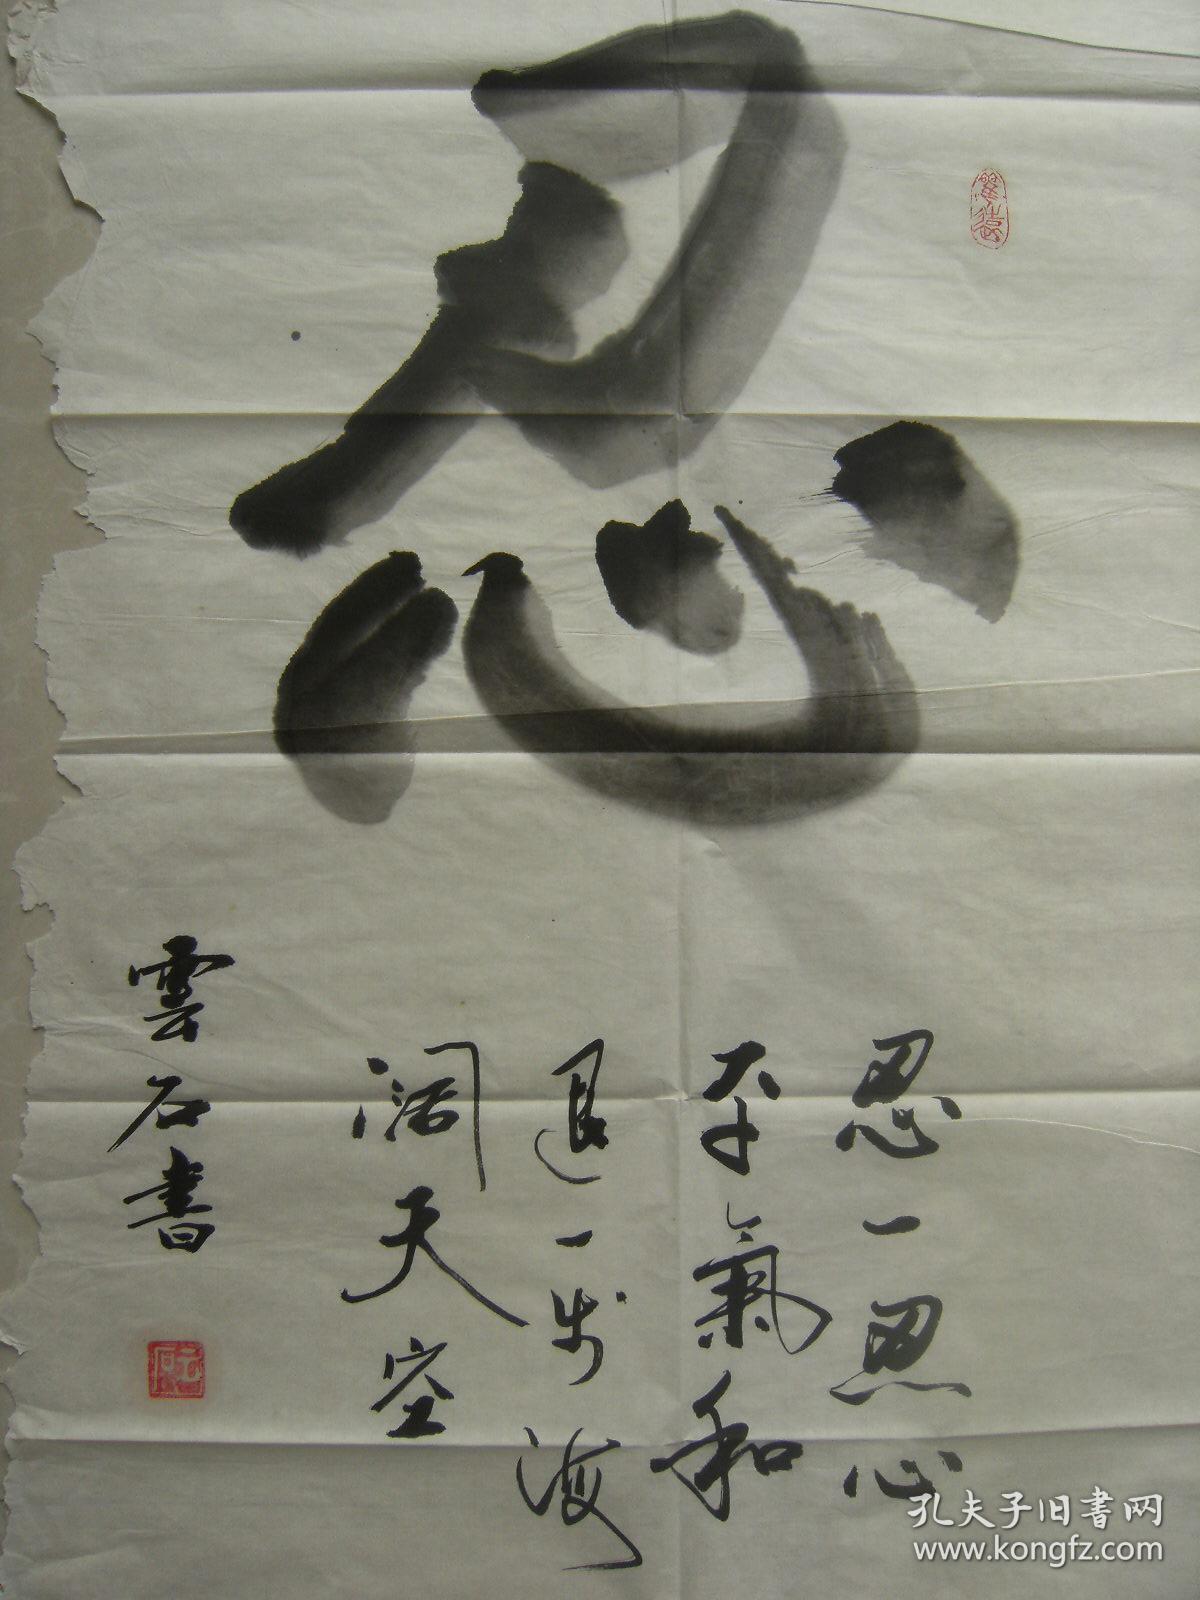 忍
忍一忍心
平氣和
退一步海
阔天空
雲石書
云石
孔夫子旧书网
www.kongfz.com